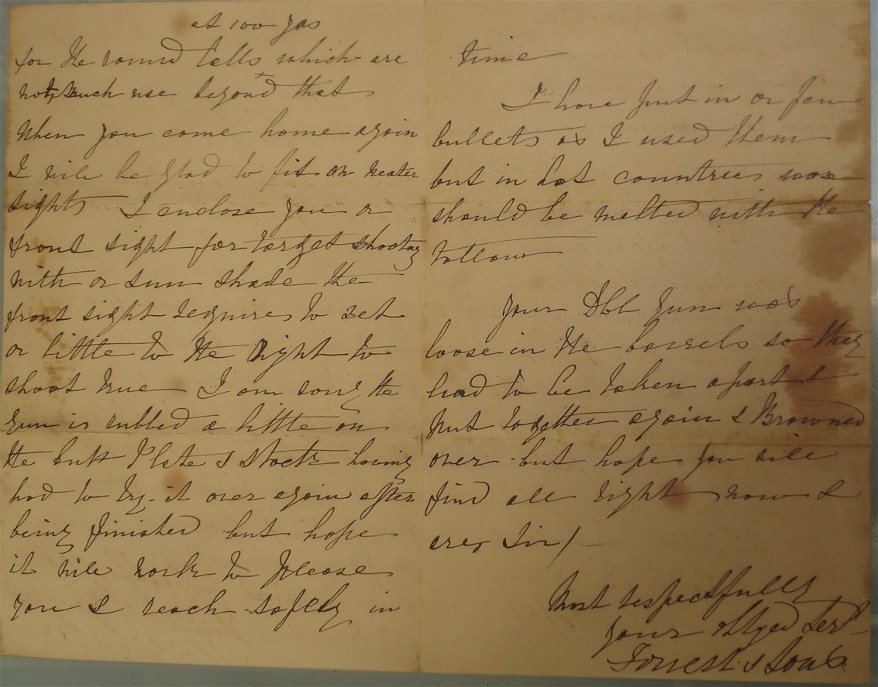 at 100 yds
for the round balls which are
not much use beyond that
When you come home again
I will be glad to fit on neater
sights I enclose you a
front sight for target shooting
with a sun shade the
front sight requires to set
a little to the Right to
shoot true I am sorry the
gun is rubbed a little on
the butt Plate & stock having
had to try it over again after
being finished but hope
it will work to please
you & reach safely in
time
I have put in a few
bullets as I used them
but in hot countries wax
should be melted with the
tallow
Your Dbl gun was
loose in the barrels so they
had to be taken apart &
put together again & Browned
over but hope you will
find all right now &
are, Sir/
Most respectfully
your oblged Servt
Forrest & Sons